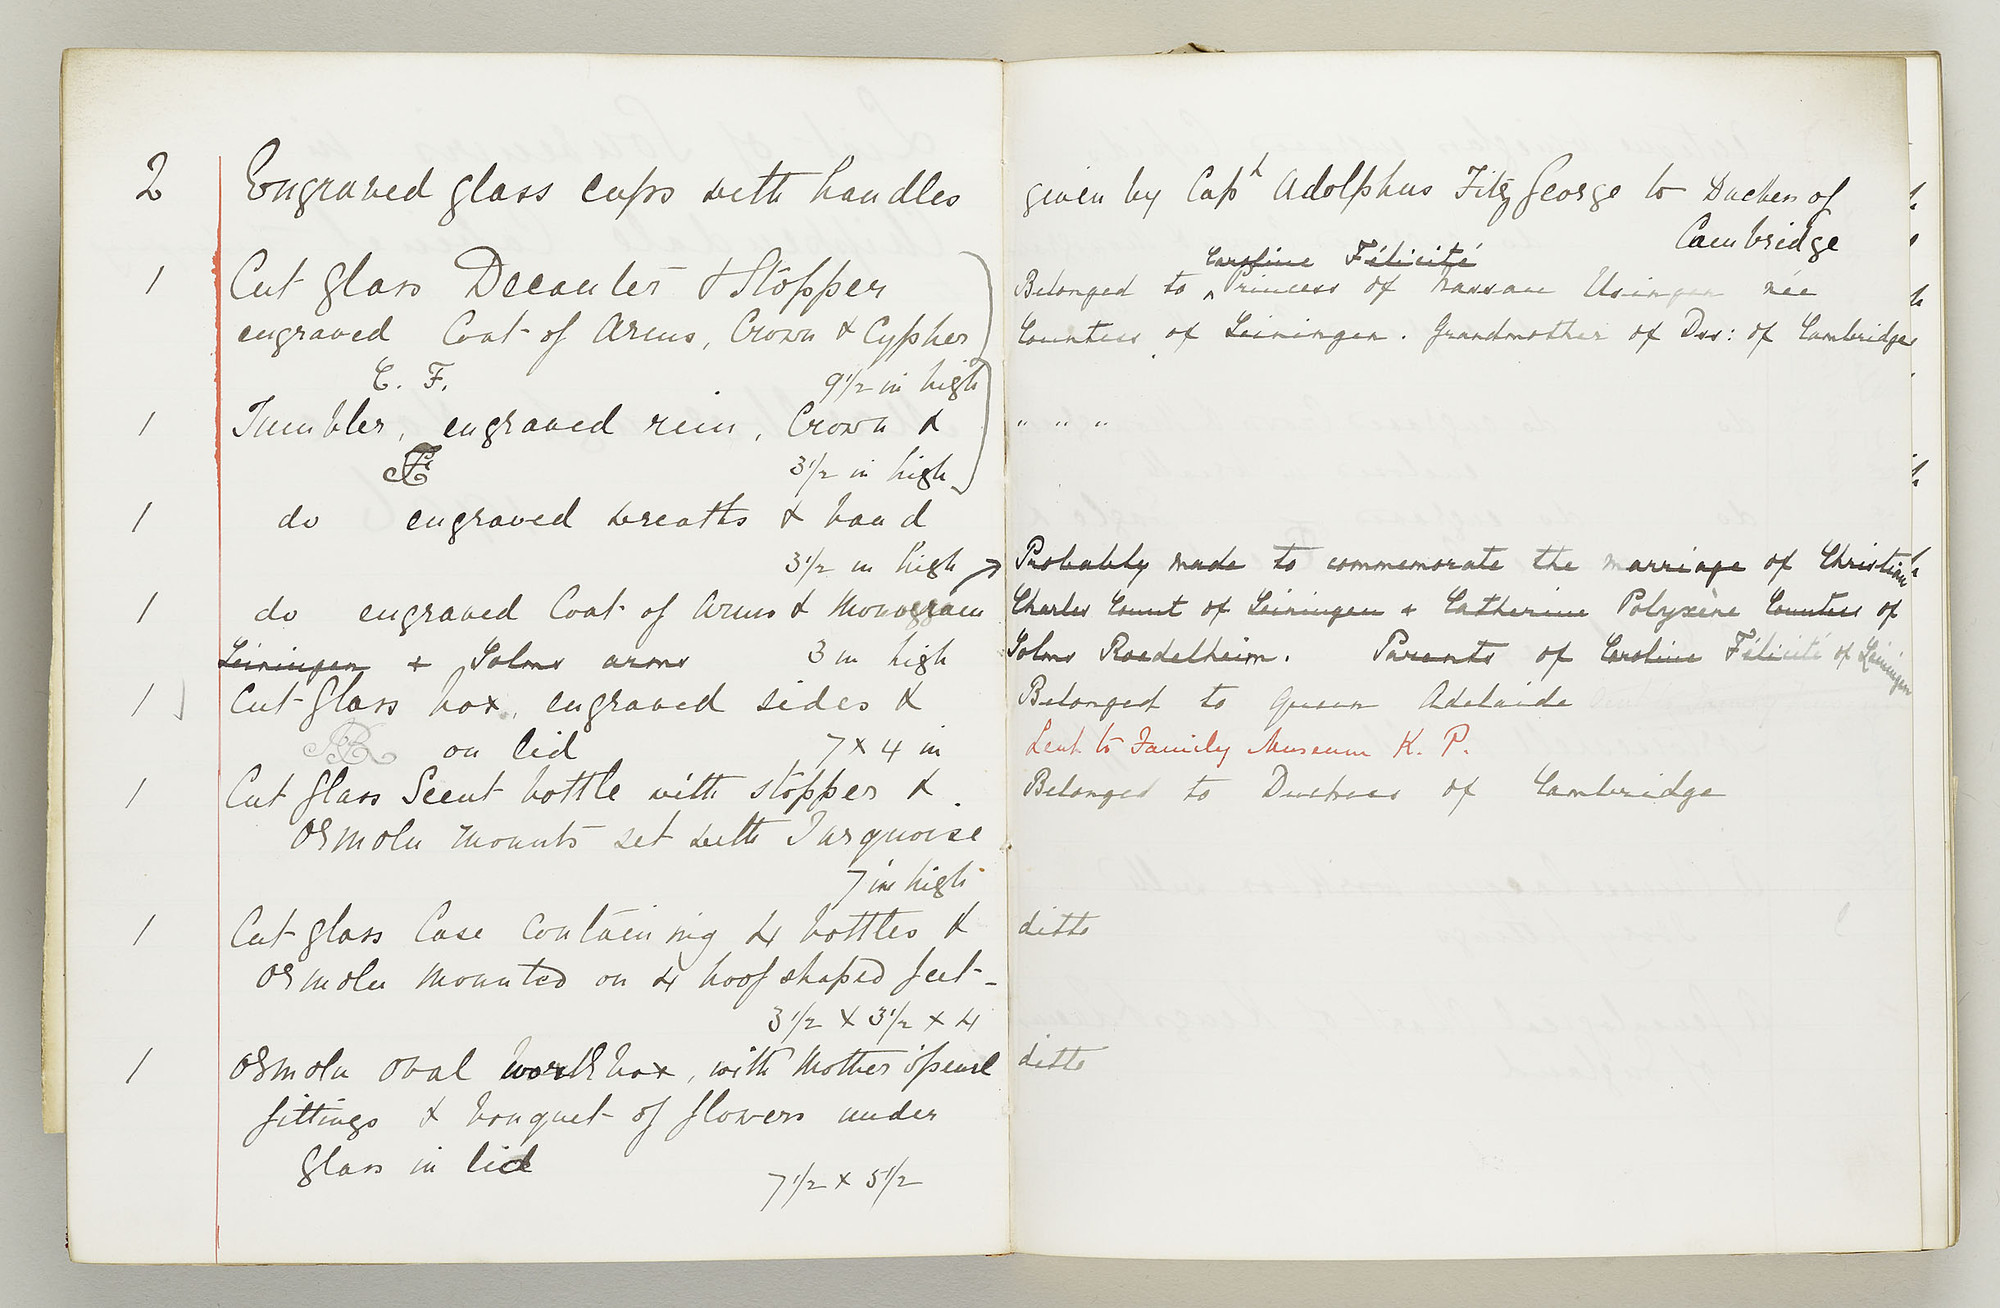 2 Engraved glass cups with handles
1 Cut glass Decanter & Stopper
engraved Coat of Arms, Crown & Cypher
C. F. 9 1/2 in high
1 Tumbler, engraved rim, Crown &
CF 3 1/2 in high
1 do engraved wreaths & band
3 1/2 in high
1 do engraved Coat of Arms & Monogram
Leiningen + Solms arms 3 in high
1 Cut Glass box, engraved sides &
AR on lid 7 x 4 in
1 Cut Glass Scent bottle with stopper &
ormolu mounts set with Turquoise
7 in high
1 Cut glass Case containing 4 bottles &
ormolu mounted on 4 hoof shaped feet
3 1/2 x 3 1/2 x 4
1 Ormolu oval workbox, with Mother o'pearl
fittings & bouquet of flowers under
Glass in lid
7 1/2 x 5 1/2
given by Capt Adolphus FitzGeorge to Duchess of
Cambridge
Caroline Félicité
Belonged to Princess of Nassau Usingen née
Countess of Leiningen. Grandmother of Dss: of Cambridge
" " "
Probably made to commemorate the marriage of Christian
Charles Count of Leiningen + Catherine Polyxène Countess of
Solms Roedelheim. Parents of Caroline Félicité of Leiningen
Belonged to Queen Adelaide
Lent to Family Museum K. P.
Belonged to Duchess of Cambridge
ditto
ditto